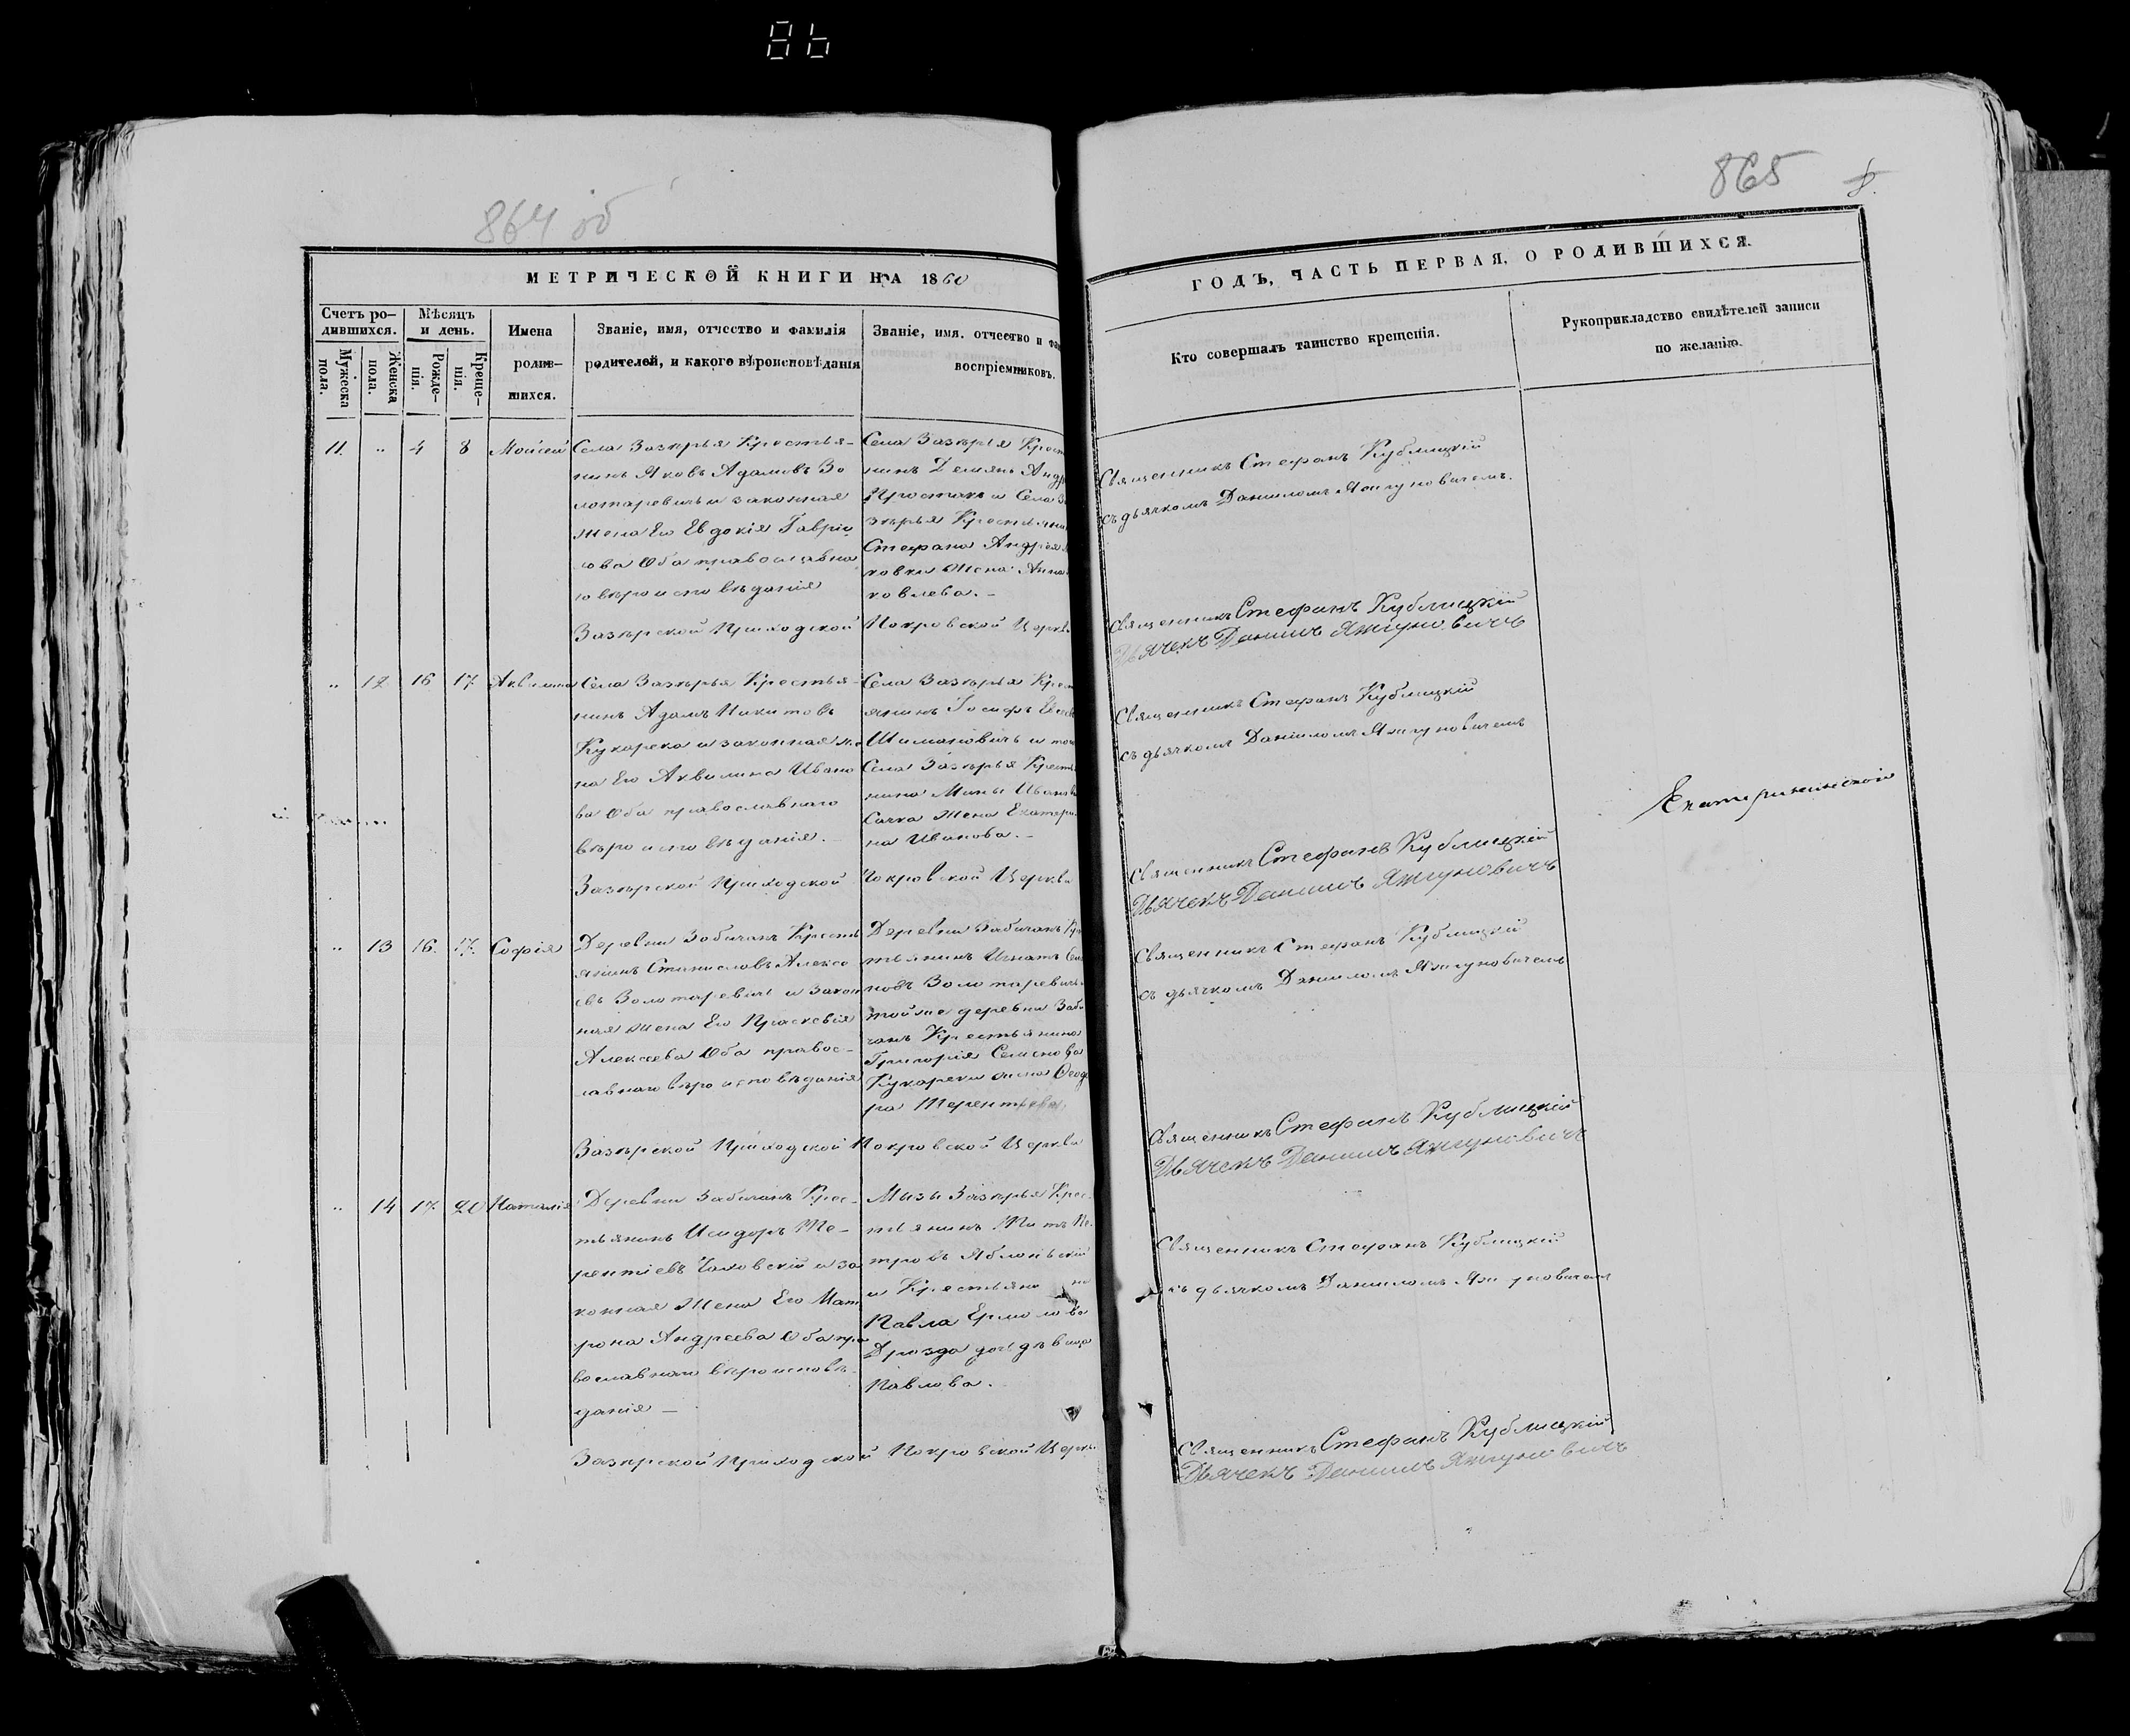 86
864 об
865
МЕТРИЧЕСКОЙ КНИГИ НА 1860
ГОДЪ, ЧАСТЬ ПЕРВАЯ, О РОДИВШИХСЯ.
Счетъ ро-
дившихся.
Мужеска
пола.
Женска
пола.
Мѣсяцъ
и день.
Рожде-
нія.
Креще-
нія.
Имена
родив-
шихся.
Званіе, имя, отчество и фамилія
родителей, и какого вѣроисповѣданія
Званіе, имя, отчество и фа
воспріемниковъ.
Кто совершалъ таинство крещенія.
Рукоприкладство свидѣтелей записи
по желанію.
11 „ 4 8 Мойсей
Села Зазѣрья Крестья-
нинъ Яковъ Адамовъ Зо
лотаревичъ и законная
жена Его Евдокія Гаврiи
лова Оба православна
го вѣроисповѣданія
Села Зазѣрья Крест
нинъ Демянъ Андр
Простакъ и Села За
зѣрья Крестьянин
Стефана Андрея
жена Анна
ковлева.
Священникъ Стефанъ Кублицкій
съ дьячкомъ Даниломъ Яжгуновичемъ.
Зазѣрской Приходской Покровской Церкви
Священникъ Стефанъ Кублицкій
Дьячекъ Данилъ Яжгуновичъ
„ 12 16 17 Аквилина
Села Зазѣрья Крестья-
нинъ Адамъ Никитовъ
Кукарека и законная же
на Его Аквилина Ивано
ва Оба православнаго
вѣроисповѣданія.
Села Зазѣрья Крест
янинъ Іосифъ
Шимановичъ и
Села Зазѣрья Крестья
нина Мины Иванова
Сачка жена Екатери
на Иванова.
Священникъ Стефанъ Кублицкій
съ дьячкомъ Даниломъ Яжгуновичемъ
Екатерининской
Зазѣрской Приходской Покровской Церкви
Священникъ Стефанъ Кублицкій
Дьячекъ Данилъ Яжгуновичъ
„ 13 16. 17. Софія
Деревни Забичанъ Кресть
янинъ Станиславъ Алексе
евъ Золотаревичъ и закон
ная жена Его Праскевія
Алексеева Оба правос-
лавнаго вѣроисповѣданія
Деревни Забичанъ Кре
тьянинъ Игнатъ Сем
новъ Золотаревичъ
тойже деревни Заби
чанъ Крестьянина
Григорія Семенова
Кукареки жена Ѳеодо
ра Терентьева
Священникъ Стефанъ Кублицкій
съ дьячкомъ Даниломъ Яжгуновичемъ
Зазѣрской Приходской Покровской Церкви
Священникъ Стефанъ Кублицкій
Дьячекъ Данилъ Яжгуновичъ
„ 14 17. 20 Наталія
Деревни Забичанъ Крес-
тьянинъ Исидоръ Те-
рентіевъ и за
конная жена Его Мат
рона Андреева Оба пра
вославнаго вѣроисповѣ-
данія
Мызы Зазѣрья Крес-
тьянинъ Титъ Пе-
тровъ Яблонскій
и Крестьянина
Павла Ермолова
Дрозда дочь дѣвица
Павлова.
Священникъ Стефанъ Кублицкій
съ дьячкомъ Даниломъ Яжгуновичемъ
Зазѣрской Приходской Покровской Церкви
Священникъ Стефанъ Кублицкій
Дьячекъ Данилъ Яжгуновичъ